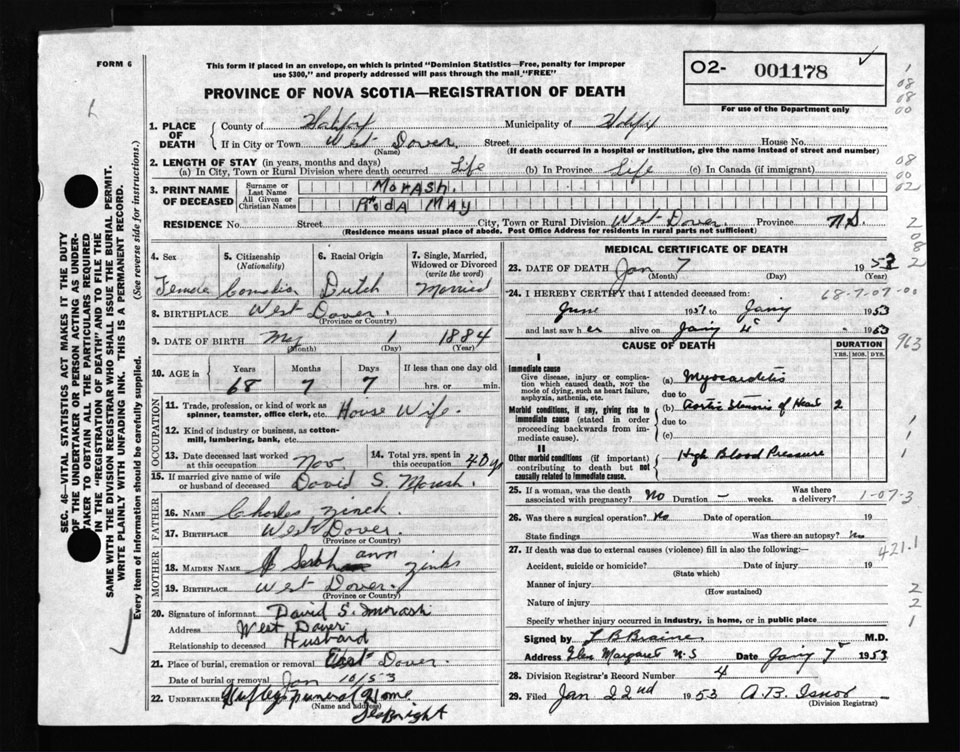 FORM 6
This form if placed in an envelope, on which is printed "Dominion Statistics—Free, penalty for improper
use $300," and properly addressed will pass through the mail "FREE"
PROVINCE OF NOVA SCOTIA—REGISTRATION OF DEATH
O2- 001178
For use of the Department only
1. PLACE OF DEATH
County of Halifax Municipality of Halifax
If in City or Town West Dover Street House No.
(Name) (If death occurred in a hospital or institution, give the name instead of street and number)
2. LENGTH OF STAY (in years, months and days)
(a) In City, Town or Rural Division where death occurred Life (b) In Province Life (c) In Canada (if immigrant)
3. PRINT NAME OF DECEASED
Surname or Last Name Morash.
All Given or Christian Names Roda May
RESIDENCE No. Street City, Town or Rural Division West Dover Province N.S.
(Residence means usual place of abode. Post Office Address for residents in rural parts not sufficient)
4. Sex 5. Citizenship (Nationality) 6. Racial Origin 7. Single, Married, Widowed or Divorced (write the word)
Female Canadian Dutch Married
8. BIRTHPLACE West Dover.
(Province or Country)
9. DATE OF BIRTH May 1 1884
(Month) (Day) (Year)
10. AGE in Years Months Days If less than one day old
68 7 7 hrs. or min.
OCCUPATION
11. Trade, profession, or kind of work as
spinner, teamster, office clerk, etc. House Wife.
12. Kind of industry or business, as cotton-
mill, lumbering, bank, etc.
13. Date deceased last worked at this occupation Nov. 14. Total yrs. spent in this occupation 40 yrs
15. If married give name of wife or husband of deceased David S. Morash.
FATHER
16. NAME Charles Zinck.
17. BIRTHPLACE West Dover
(Province or Country)
MOTHER
18. MAIDEN NAME Sarah ann Zinks
19. BIRTHPLACE West Dover.
(Province or Country)
20. Signature of informant David S. Morash
Address West Dover
Relationship to deceased Husband
21. Place of burial, cremation or removal East Dover.
Date of burial or removal Jan 10/53
22. UNDERTAKER Funeral Home
(Name and address) Seabright
MEDICAL CERTIFICATE OF DEATH
23. DATE OF DEATH Jan 7 1953
(Month) (Day) (Year)
24. I HEREBY CERTIFY that I attended deceased from: 68-7-07-00
June 1951 to Jany 1953
and last saw h er alive on Jany 4th 1953
CAUSE OF DEATH DURATION
YRS. MOS. DYS.
I
Immediate cause
Give disease, injury or complica-
tion which caused death, not the
mode of dying, such as heart failure,
asphyxia, asthenia, etc.
(a) Myocarditis
due to
Morbid conditions, if any, giving rise to
immediate cause (stated in order
proceeding backwards from im-
mediate cause).
(b) Aortic Stenosis of Heart 2
due to
(c)
II
Other morbid conditions (if important)
contributing to death but not
causally related to immediate cause.
High Blood Pressure
25. If a woman, was the death associated with pregnancy? No Duration – weeks. Was there a delivery? 1-07-3
26. Was there a surgical operation? No Date of operation 19
State findings Was there an autopsy? No
27. If death was due to external causes (violence) fill in also the following:—
421.1
Accident, suicide or homicide? Date of injury 19
(State which)
Manner of injury
(How sustained)
Nature of injury
Specify whether injury occurred in industry, in home, or in public place
Signed by L B Braine M.D.
Address Glen Margaret N.S Date Jany 7th 1953
28. Division Registrar's Record Number 4
29. Filed Jan 22nd 1953 A.B. Isnor
(Division Registrar)
SEC. 46—VITAL STATISTICS ACT MAKES IT THE DUTY
OF THE UNDERTAKER OR PERSON ACTING AS UNDER-
TAKER TO OBTAIN ALL THE PARTICULARS REQUIRED
IN THE "REGISTRATION OF DEATH" AND TO FILE THE
SAME WITH THE DIVISION REGISTRAR WHO SHALL ISSUE THE BURIAL PERMIT.
WRITE PLAINLY WITH UNFADING INK. THIS IS A PERMANENT RECORD.
Every item of information should be carefully supplied. (See reverse side for instructions.)
1
08
08
00
08
00
02
2
08
2
963
1
1
1
2
2
1